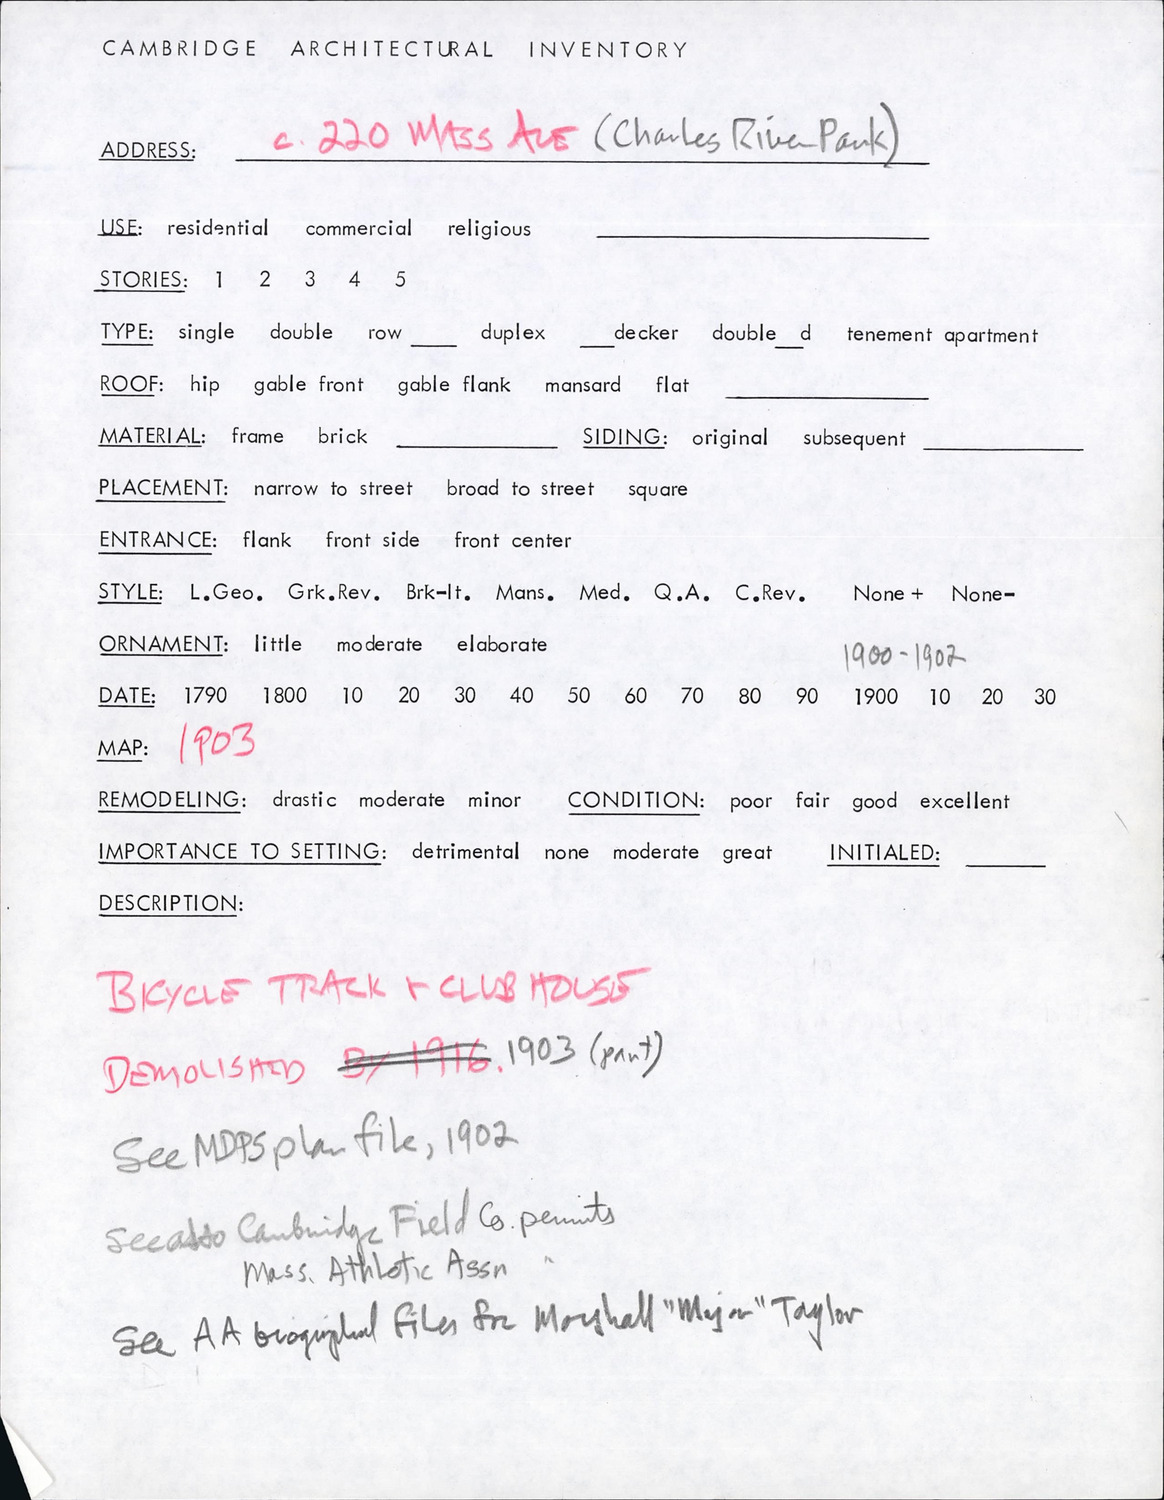 CAMBRIDGE ARCHITECTURAL INVENTORY
ADDRESS: c. 220 MASS AVE (Charles River Park)
USE: residential commercial religious
STORIES: 1 2 3 4 5
TYPE: single double row ____ duplex ___decker double__d tenement apartment
ROOF: hip gable front gable flank mansard flat
MATERIAL: frame brick ____ SIDING: original subsequent ____
PLACEMENT: narrow to street broad to street square
ENTRANCE: flank front side front center
STYLE: L.Geo. Grk.Rev. Brk-It. Mans. Med. Q.A. C.Rev. None + None-
ORNAMENT: little moderate elaborate
1900-1902
DATE: 1790 1800 10 20 30 40 50 60 70 80 90 1900 10 20 30
MAP: 1903
REMODELING: drastic moderate minor CONDITION: poor fair good excellent
IMPORTANCE TO SETTING: detrimental none moderate great INITIALED: ____
DESCRIPTION:
BICYCLE TRACK + CLUB HOUSE
DEMOLISHED By 1916. 1903 (part)
See MDPS plan file, 1902
See also Cambridge Field Co. permits
Mass. Athletic Assn "
See AA biographical files for Marshall "Major" Taylor